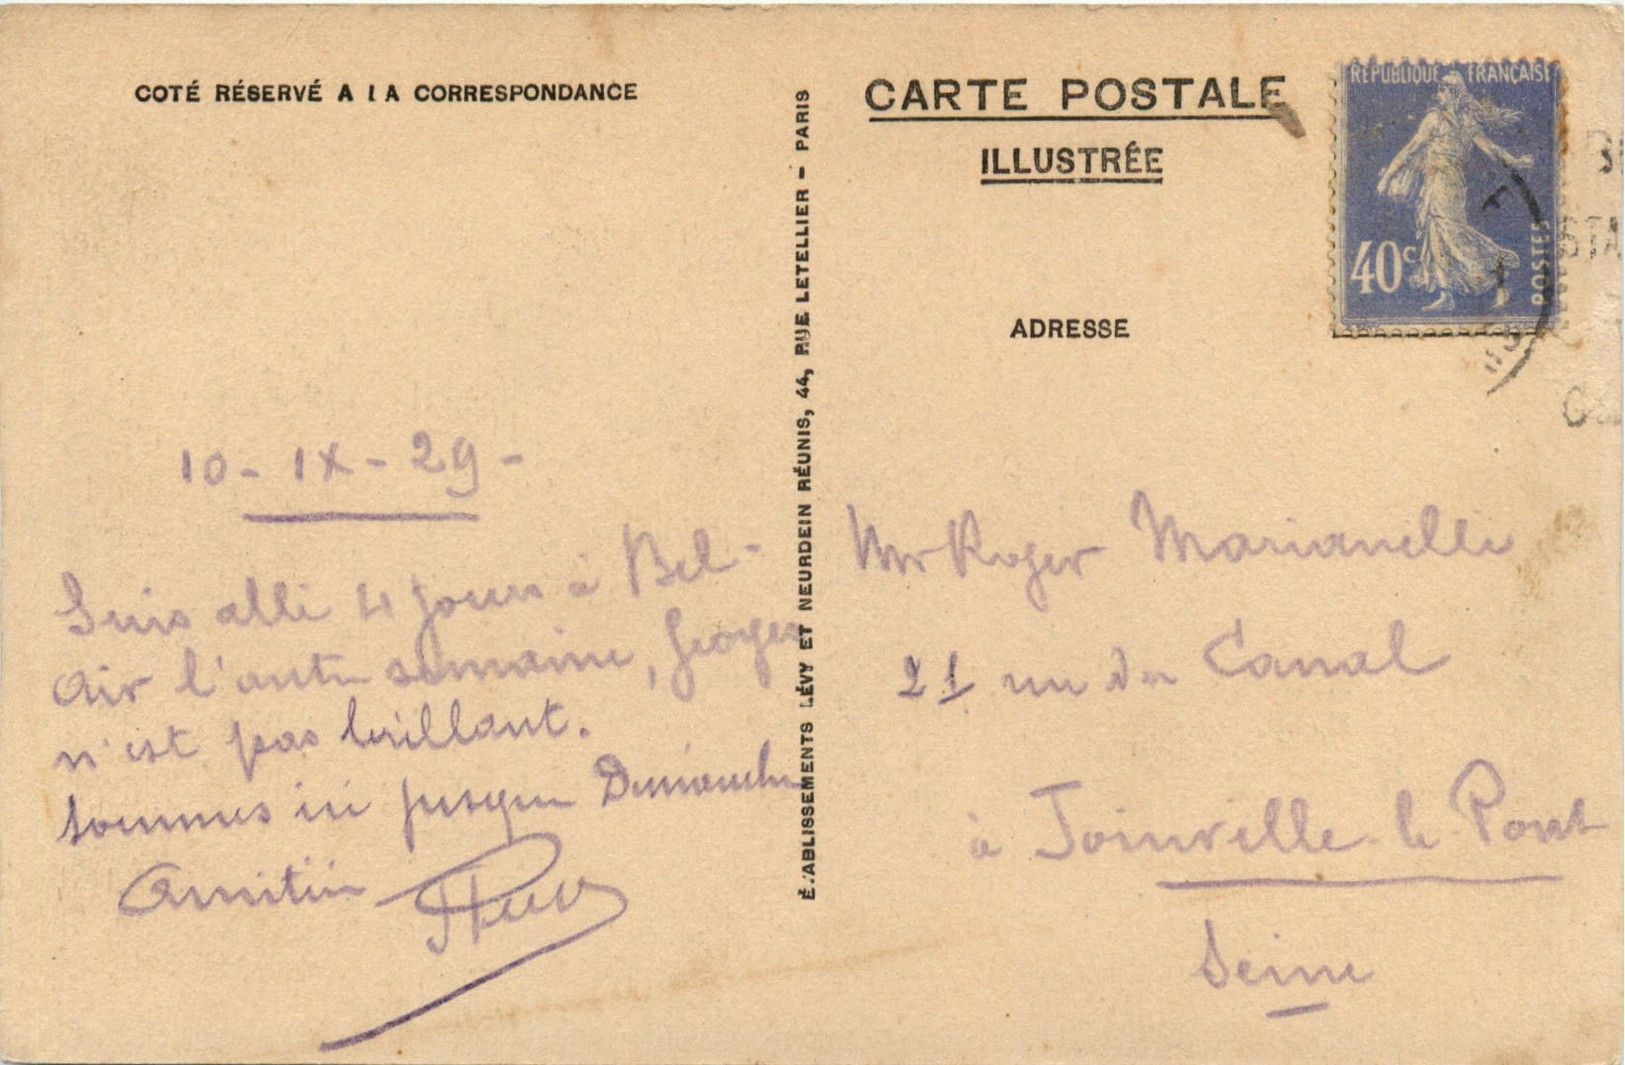 COTÉ RÉSERVÉ A LA CORRESPONDANCE
10 - IX - 29 -
Suis allé 4 jours à Bel-
Air l'autre semaine, Georges
n'est pas brillant.
Sommes ici jusqu'au Dimanche
Amitiés
ÉTABLISSEMENTS LÉVY ET NEURDEIN RÉUNIS, 44, RUE LETELLIER - PARIS
CARTE POSTALE
ILLUSTRÉE
RÉPUBLIQUE FRANÇAISE
40c
POSTES
ADRESSE
Mr Roger Marianelli
21 rue du Canal
à Joinville-le-Pont
Seine